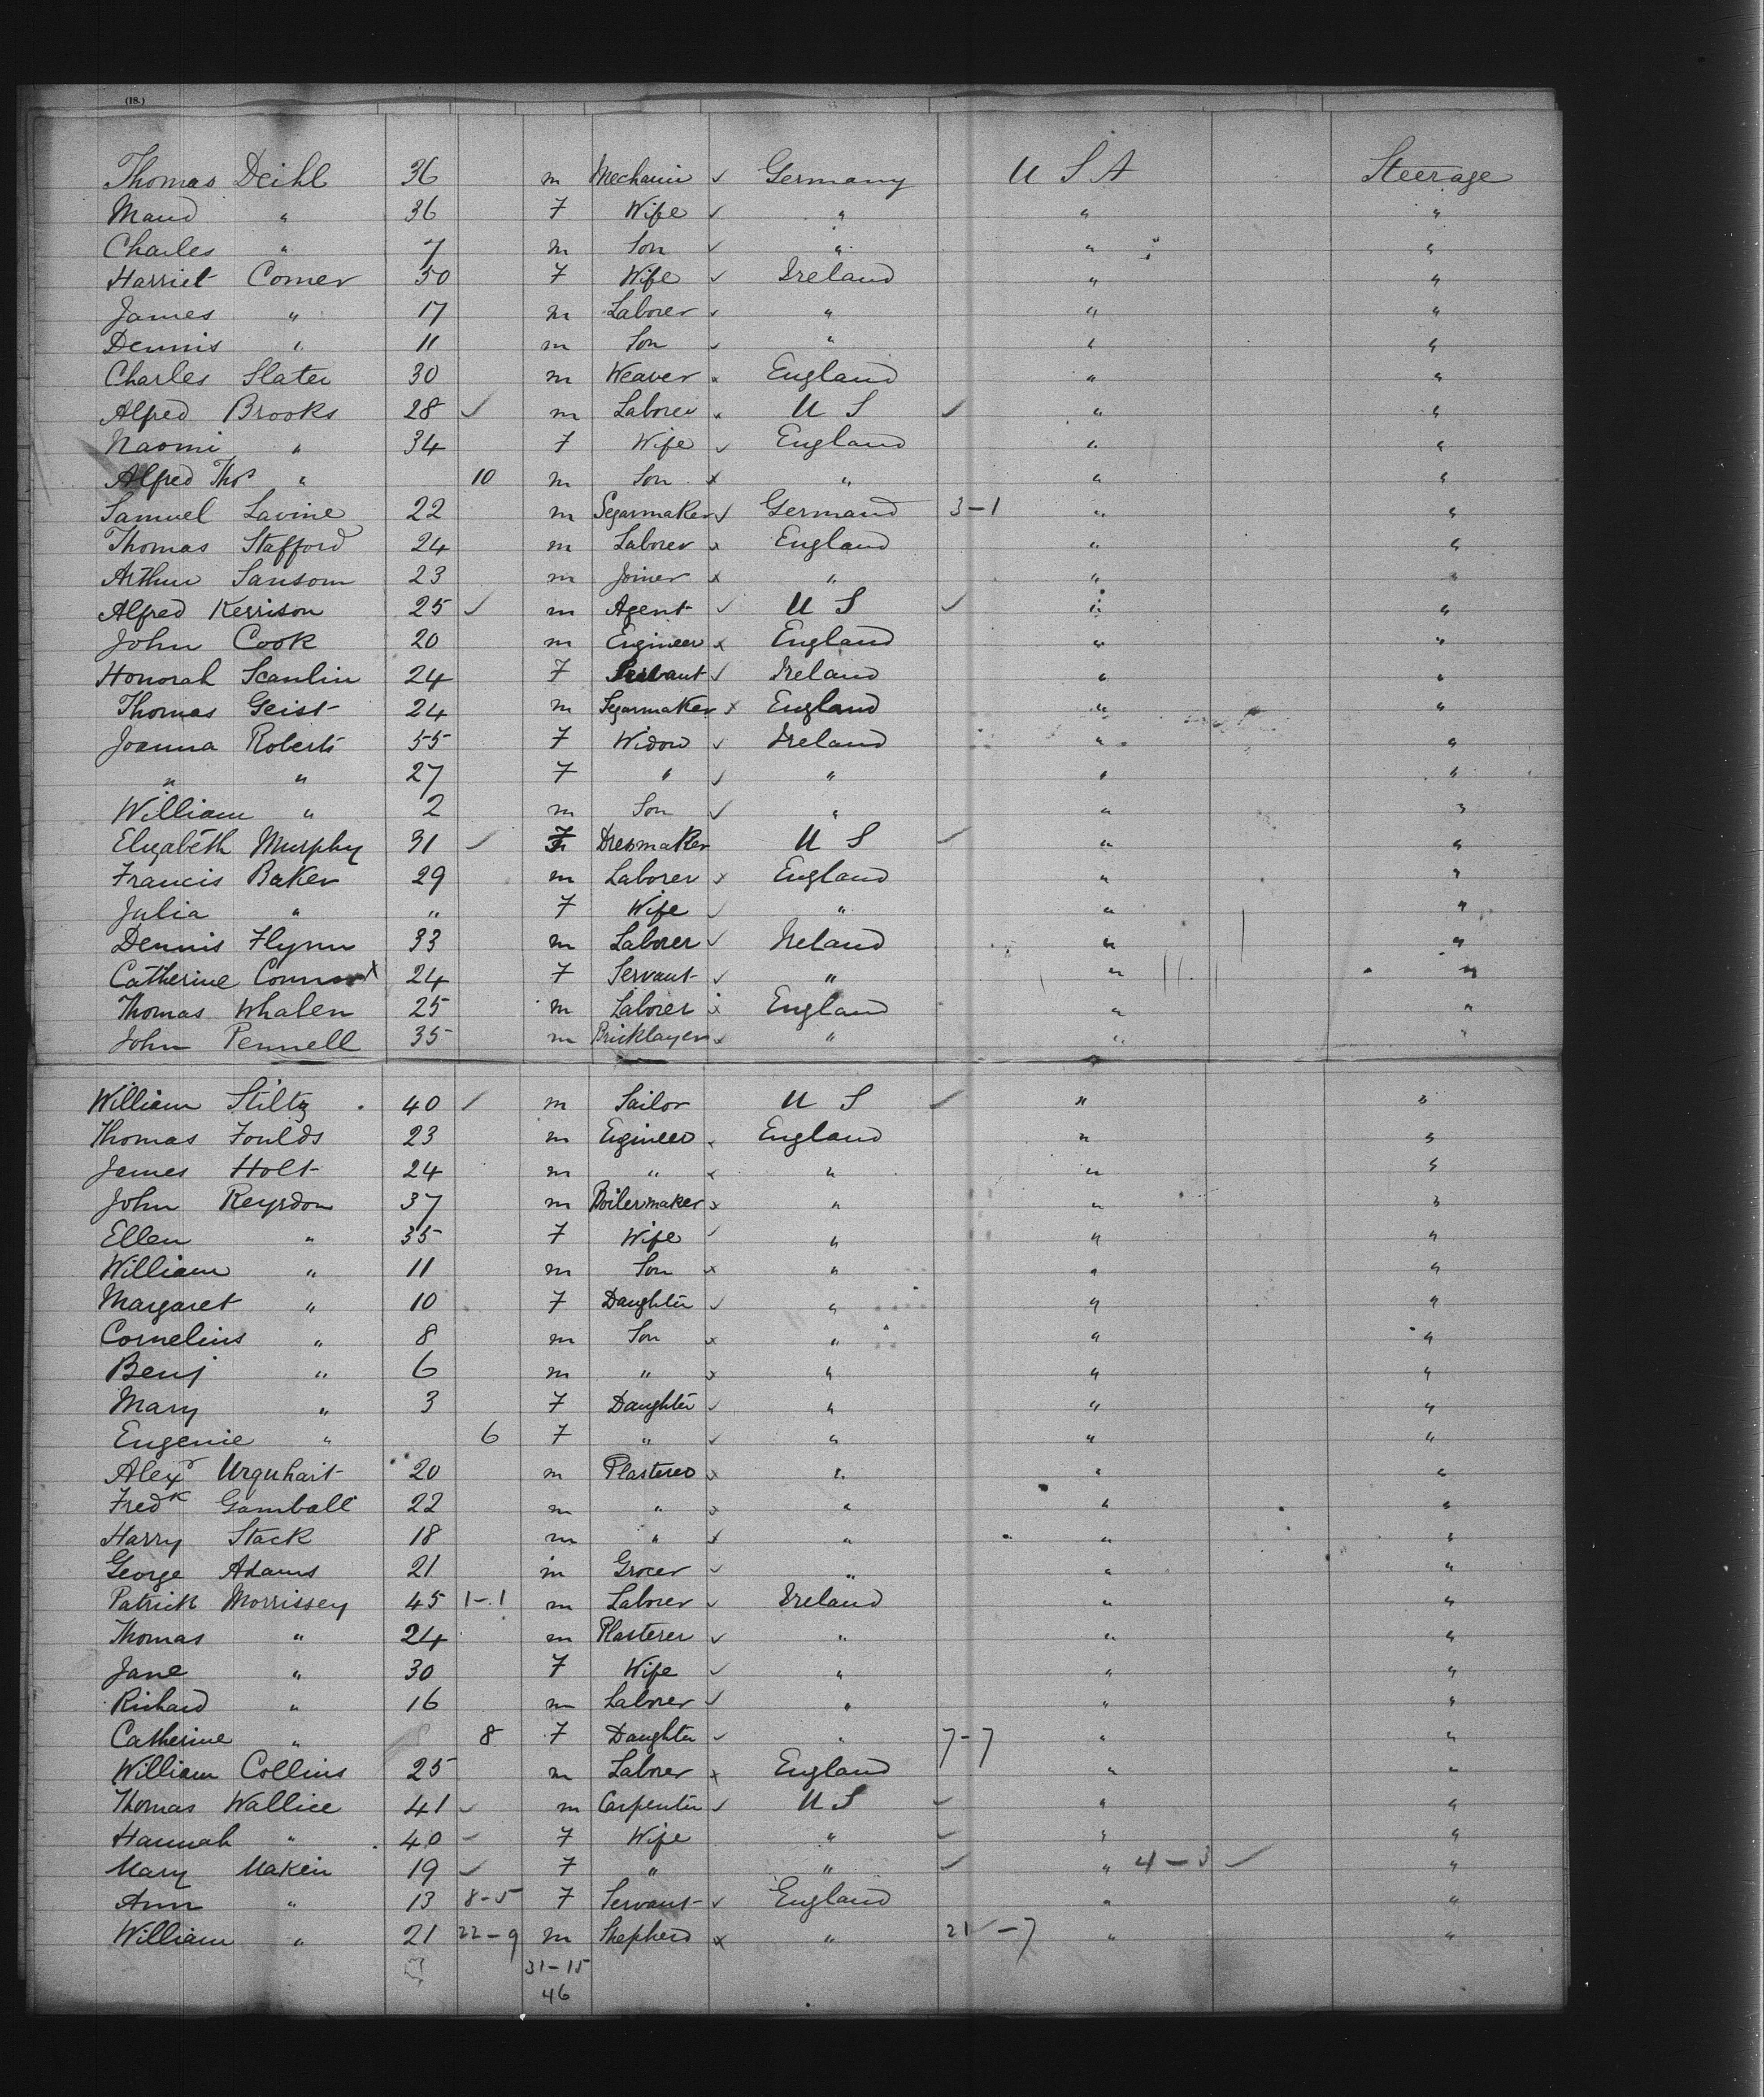 (18.)
Thomas Deihl 36 m Mechanic ✓ Germany U S A Steerage
Maud " 36 F Wife ✓ " " "
Charles " 7 m Son ✓ " " "
Harriet Comer 50 F Wife ✓ Ireland " "
James " 17 m Laborer ✓ " " "
Dennis " 11 m Son ✓ " " "
Charles Slater 30 m Weaver x England " "
Alfred Brooks 28 ✓ m Laborer x U S ✓ " "
Naomi " 34 F Wife ✓ England " "
Alfred Thos " 10 m Son x " " "
Samuel Lavine 22 m Segarmaker ✓ Germand 3-1 " "
Thomas Stafford 24 m Laborer x England " "
Arthur Sansom 23 m Joiner x " " "
Alfred Kerrison 25 ✓ m Agent ✓ U S ✓ " "
John Cook 20 m Engineer x England " "
Honorah Scanlin 24 F Servant ✓ Ireland " "
Thomas Geist 24 m Segarmaker x England " "
Joanna Roberts 55 F Widow ✓ Ireland " "
" " 27 F " ✓ " " "
William " 2 m Son ✓ " " "
Elizabeth Murphy 31 ✓ F Dresmaker U S ✓ " "
Francis Baker 29 m Laborer x England " "
Julia " " F Wife ✓ " " "
Dennis Flynn 33 m Laborer ✓ Ireland " "
Catherine Connor x 24 F Servant ✓ " " "
Thomas Whalen 25 m Laborer x England " "
John Pennell 35 m Bricklayer x " " "
William Stiltz 40 ✓ m Sailor U S ✓ " "
Thomas Foulds 23 m Egineer x England " "
James Holt 24 m " x " " "
John Reyrdon 37 m Boilermaker x " " "
Ellen " 35 F Wife ✓ " " "
William " 11 m Son x " " "
Margaret " 10 F Daughter ✓ " " "
Cornelius " 8 m Son x " " "
Benj " 6 m " x " " "
Mary " 3 F Daughter ✓ " " "
Eugenie " 6 F " ✓ " " "
Alexr Urquhart 20 m Plasterer x " " "
Fredk Gamball 22 m " x " " "
Harry Stack 18 m " x " " "
George Adams 21 m Grocer ✓ " " "
Patrick Morrissey 45 1-1 m Laborer ✓ Ireland " "
Thomas " 24 m Plasterer ✓ " " "
Jane " 30 F Wife ✓ " " "
Richard " 16 m Laborer ✓ " " "
Catherine " 8 F Daughter ✓ " 7-7 " "
William Collins 25 m Laborer x England " "
Thomas Wallice 41 ✓ m Carpenter ✓ U S ✓ " "
Hannah " 40 ✓ F Wife " ✓ " "
Mary Makein 19 ✓ F " " ✓ " 4-3 ✓ "
Ann " 13 8-5 F Servant ✓ England " "
William " 21 22-9 m Shepherd x " 21-7 " "
31-15
46